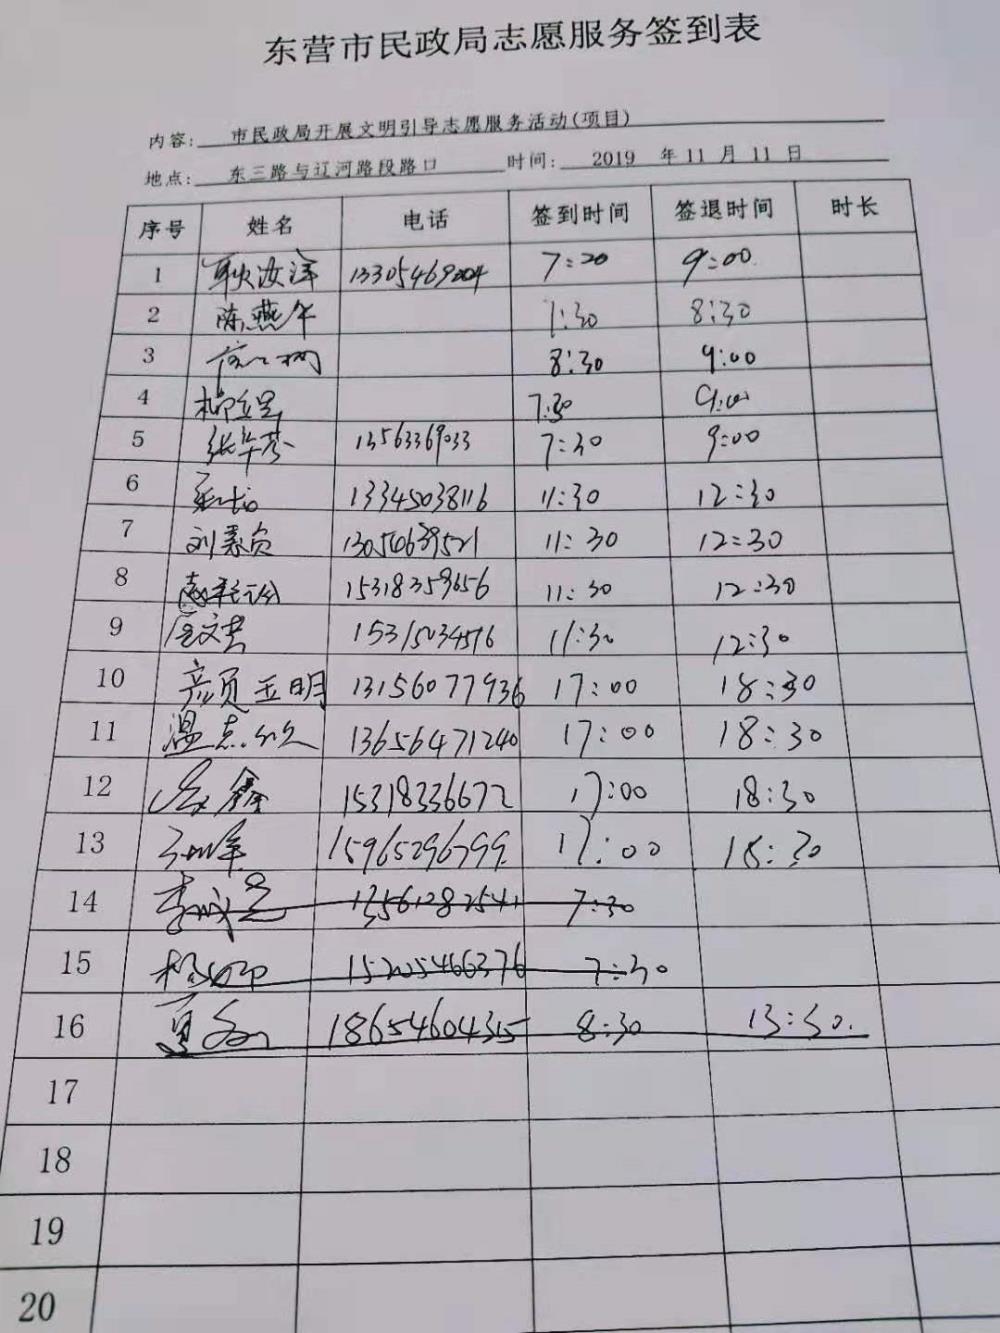 东营市民政局志愿服务签到表
内容: 市民政局开展文明引导志愿服务活动(项目)
地点: 东三路与辽河路段路口 时间: 2019 年 11 月 11 日
序号 姓名 电话 签到时间 签退时间 时长
1 耿汝洋 13305469204 7:20 9:00
2 陈燕午 7:30 8:30
3 8:30 9:00
4 7:30 9:00
5 张华芬 13563369033 7:30 9:00
6 13345038116 11:30 12:30
7 刘素贞 13054639521 11:30 12:30
8 15318359656 11:30 12:30
9 15315034516 11:30 12:30
10 颜玉明 13156077936 17:00 18:30
11 温志 13656471240 17:00 18:30
12 鑫 15318336672 17:00 18:30
13 15965296799 17:00 18:30
14 李 13561282541 7:30
15 杨 15205466376 7:30
16 夏 18654604315 8:30 13:30.
17
18
19
20